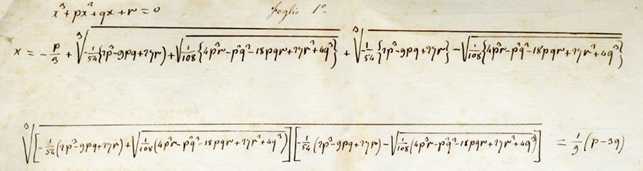 x³+px²+qx+r=0 Foglio 1º
x = -p/3 + ∛(-1/54{2p³-9pq+27r)+√(1/108{4p³r-p²q²-18pqr+27r²+4q³}) + ∛(-1/54{2p³-9pq+27r}-√(1/108{4p³r-p²q²-18pqr+27r²+4q³})
∛([-1/54(2p³-9pq+27r)+√(1/108(4p³r-p²q²-18pqr+27r²+4q³)][-1/54(2p³-9pq+27r)-√(1/108(4p³r-p²q²-18pqr+27r²+4q³)]) = 1/9(p-3q)